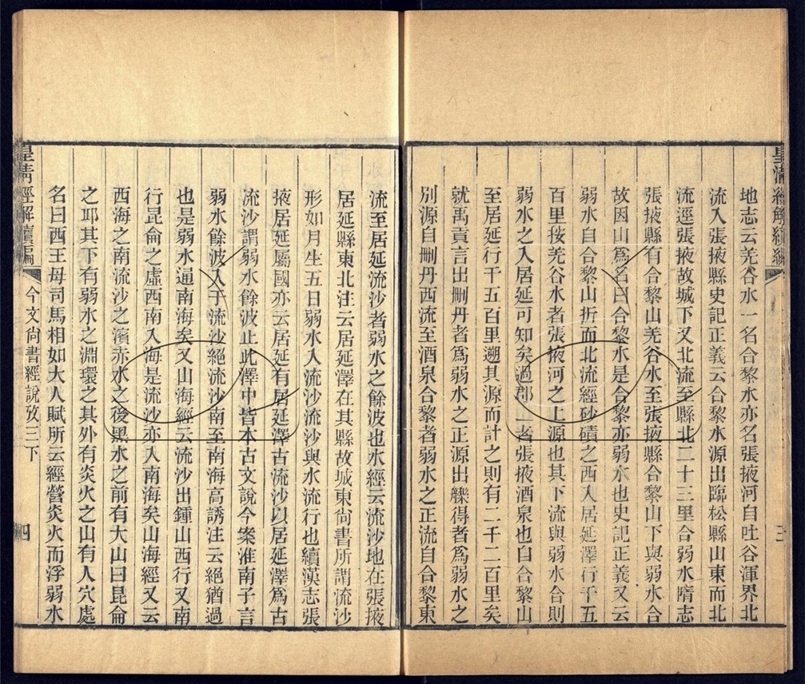 皇清經解續編
地志云羌谷水一名合黎水亦名張掖河自吐谷渾界北
流入張掖縣史記正義云合黎水源出臨松縣山東而北
流逕張掖故城下又北流至縣北二十三里合弱水隋志
張掖縣有合黎山羌谷水至張掖縣合黎山下與弱水合
故因山爲名曰合黎水是合黎亦弱水也史記正義又云
弱水自合黎山折而北流經砂磧之西入居延澤行千五
百里按羌谷水者張掖河之上源也其下流與弱水合則
弱水之入居延可知矣過郡二者張掖酒泉也自合黎山
至居延行千五百里遡其源而計之則有二千二百里矣
就禹貢言出刪丹者爲弱水之正源出觻得者爲弱水之
別源自刪丹西流至酒泉合黎者弱水之正流自合黎東
流至居延流沙者弱水之餘波也水經云流沙地在張掖
居延縣東北注云居延澤在其縣故城東尙書所謂流沙
形如月生五日弱水入流沙流沙與水流行也續漢志張
掖居延屬國亦云居延有居延澤古流沙以居延澤爲古
流沙謂弱水餘波止此澤中皆本古文說今案淮南子言
弱水餘波入于流沙絕流沙南至南海高誘注云絕猶過
也是弱水通南海矣又山海經云流沙出鍾山西行又南
行昆侖之虛西南入海是流沙亦入南海矣山海經又云
西海之南流沙之濱赤水之後黑水之前有大山曰昆侖
之邱其下有弱水之淵環之其外有炎火之山有人穴處
名曰西王母司馬相如大人賦所云經營炎火而浮弱水
皇清經解續編 今文尙書經說攷三下 四